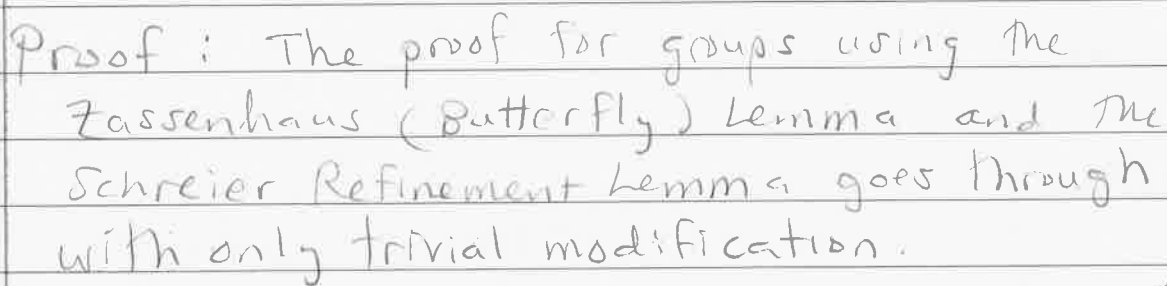 Proof : The proof for groups using the
Zassenhaus (Butterfly) Lemma and the
Schreier Refinement Lemma goes through
with only trivial modification.